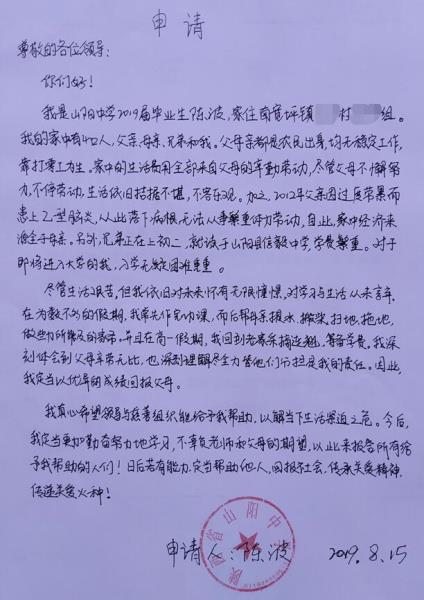 申请
尊敬的各位领导：
你们好！
我是山阳中学2019届毕业生陈波，家住南宽坪镇 村 组。
我的家中有4口人，父亲、母亲、兄弟和我。父母亲都是农民出身，均无稳定工作，
靠打零工为生。家中的生活费用全部来自父母的辛勤劳动，尽管父母不懈努
力，不停劳动，生活依旧拮据不堪，不容乐观。加之，2012年父亲因过度劳累而
患上乙型肺炎，从此落下病根，无法从事繁重体力劳动，自此，家中经济来
源全于母亲。另外，兄弟正在上初二，就读于山阳县信毅中学，学费繁重。对于
即将进入大学的我，入学无疑困难重重。
尽管生活艰苦，但我依旧对未来怀有无限憧憬，对学习与生活从未言弃。
在为数不多的假期，我常先作完功课，而后帮母亲提水、搬柴、扫地、拖地，
做些力所能及的家务。并且在高一假期，我回到老家采摘连翘，筹备学费。我深
刻体会到父母辛劳无比，也深刻理解尽全力替他们分担是我的责任。因此，
我定当以优异的成绩回报父母。
我真心希望领导与慈善组织能给予我帮助，以解当下生活窘迫之危。今后，
我定当更加勤奋努力地学习，不辜负老师和父母的期望，以此来报答所有给
予我帮助的人们！日后若有能力，定当帮助他人，回报社会，传承关爱精神，
传递关爱火种！
陕西省山阳中学
申请人：陈波 2019.8.15